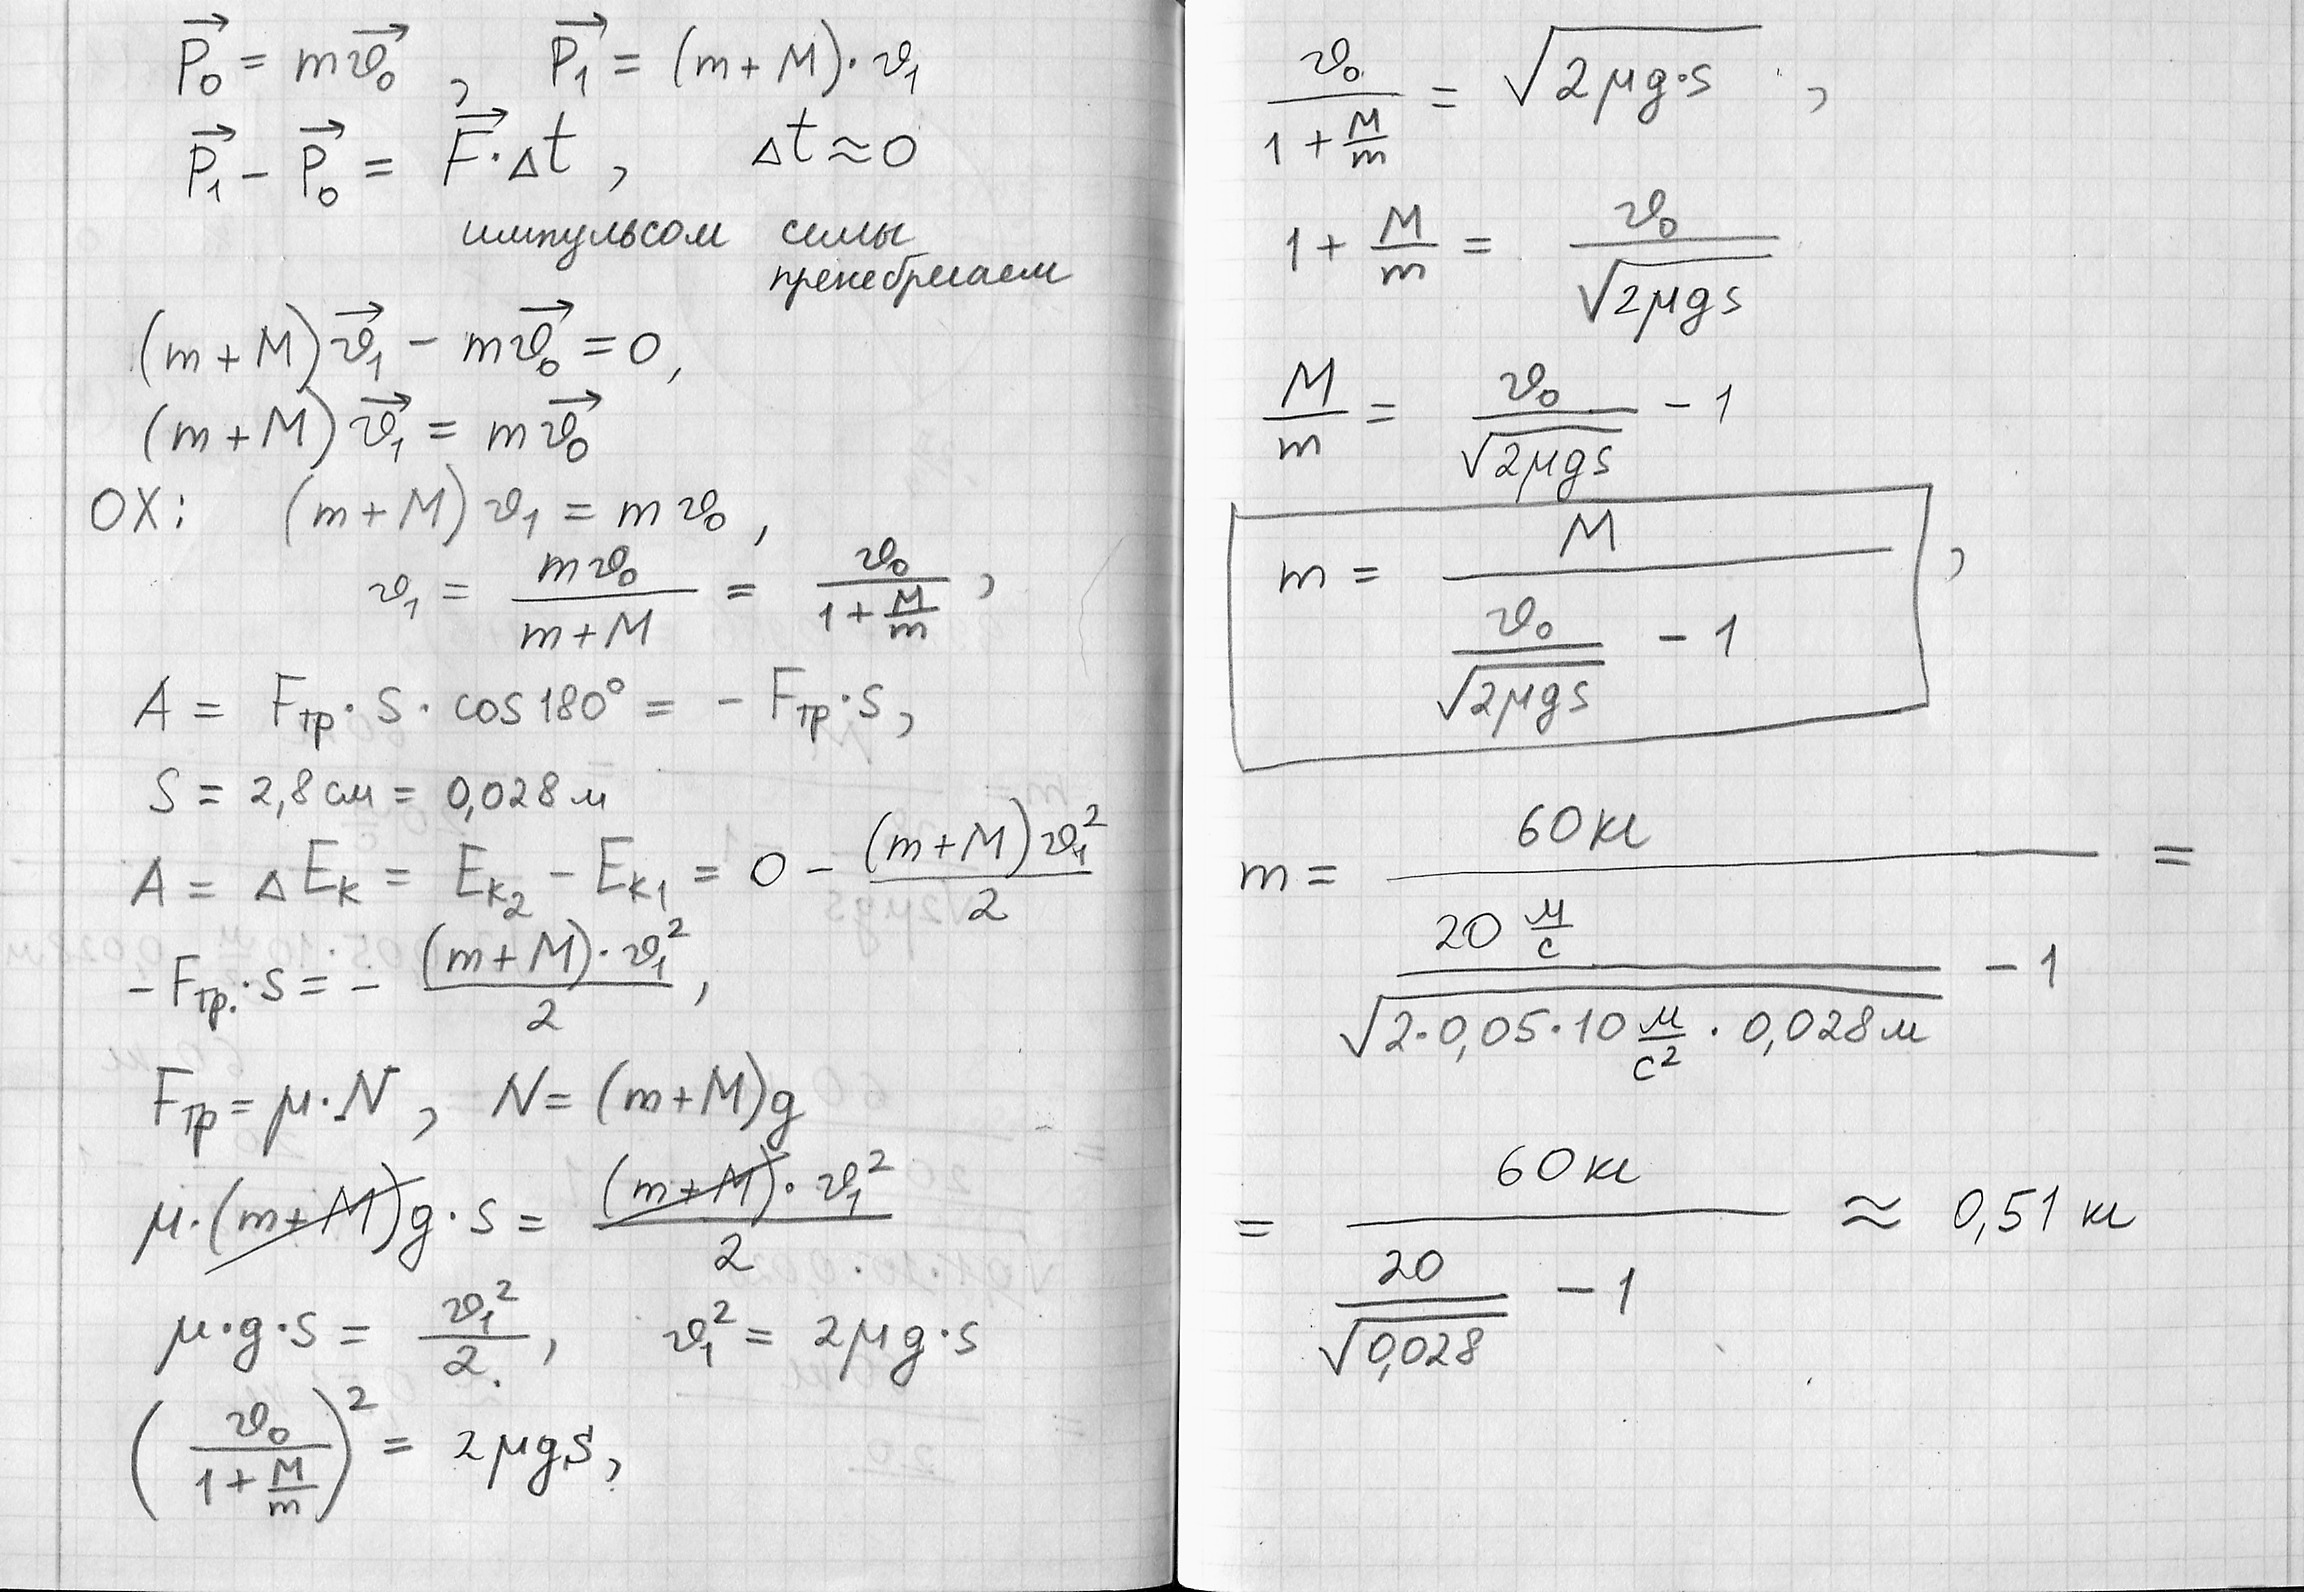 P⃗₀ = mv⃗₀ , P⃗₁ = (m+M)·v₁
P⃗₁ − P⃗₀ = F⃗·Δt , Δt≈0
импульсом силы
пренебрегаем
(m+M)v⃗₁ − mv⃗₀ = 0,
(m+M)v⃗₁ = mv⃗₀
OX: (m+M)v₁ = mv₀ ,
v₁ = mv₀/(m+M) = v₀/(1+M/m) ,
A = Fтр·S·cos180° = −Fтр·S,
S = 2,8см = 0,028м
A = ΔEк = Eк₂ − Eк₁ = 0 − (m+M)v₁²/2
−Fтр.·S = − (m+M)·v₁²/2 ,
Fтр = μ·N , N = (m+M)g
μ·(m+M)g·S = (m+M)·v₁²/2
μ·g·S = v₁²/2 , v₁² = 2μg·S
(v₀/(1+M/m))² = 2μgS,
v₀/(1+M/m) = √(2μg·S) ,
1+M/m = v₀/√(2μgS)
M/m = v₀/√(2μgS) − 1
m = M/(v₀/√(2μgS) − 1) ,
m = 60кг/(20 м/с/√(2·0,05·10 м/с²·0,028м) − 1) =
= 60кг/(20/√(0,028) − 1) ≈ 0,51 кг